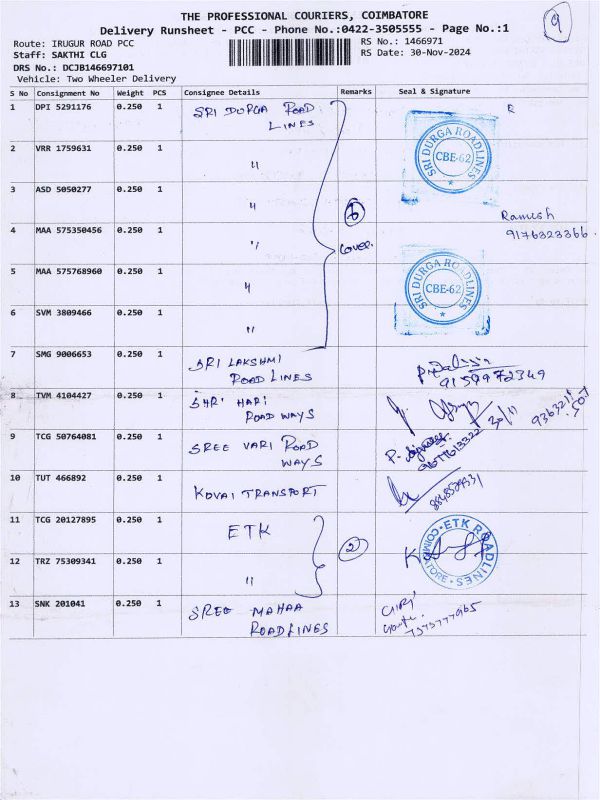 THE PROFESSIONAL COURIERS, COIMBATORE
9
Delivery Runsheet - PCC - Phone No.:0422-3505555 - Page No.:1
Route: IRUGUR ROAD PCC
RS No.: 1466971
Staff: SAKTHI CLG
RS Date: 30-Nov-2024
DRS No.: DCJB146697101
Vehicle: Two Wheeler Delivery
S No Consignment No Weight PCS Consignee Details Remarks Seal & Signature
1 DPI 5291176 0.250 1 SRI DURGA ROAD
LINES
2 VRR 1759631 0.250 1 "
SRI DURGA ROADLINES
CBE-62
3 ASD 5050277 0.250 1 "
6
Ramesh
4 MAA 575350456 0.250 1 "
9176323366
cover.
5 MAA 575768960 0.250 1 "
SRI DURGA ROADLINES
CBE-62
6 SVM 3809466 0.250 1 "
7 SMG 9006653 0.250 1 SRI LAKSHMI
ROAD LINES
9159972349
8 TVM 4104427 0.250 1 SHRI HARI
ROAD WAYS
30/11
9 TCG 50764081 0.250 1 SREE VARI ROAD
WAYS
10 TUT 466892 0.250 1 KOVAI TRANSPORT
11 TCG 20127895 0.250 1 ETK
2
ETK ROADLINES
COIMBATORE
12 TRZ 75309341 0.250 1 "
13 SNK 201041 0.250 1 SREE MAHAA
ROADLINES